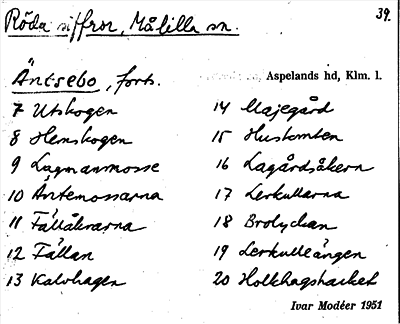 Röda siffror, Målilla sn.
39.
Äntsebo, forts.
Aspelands hd, Klm. l.
7 Utskogen
8 Hemskogen
9 Lagmanmosse
10 Äntemossarna
11 Fällåkrarna
12 Fållan
13 Kalvhagen
14 Majegård
15 Hustomten
16 Lagårdsåkern
17 Lerkullarna
18 Brolyckan
19 Lerkulleängen
20 Holkhagshacket
Ivar Modéer 1951